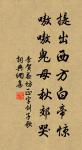 提出西方白帝惊
嗷嗷鬼母秋郊哭
李贺春坊正字剑子歌
词典网集